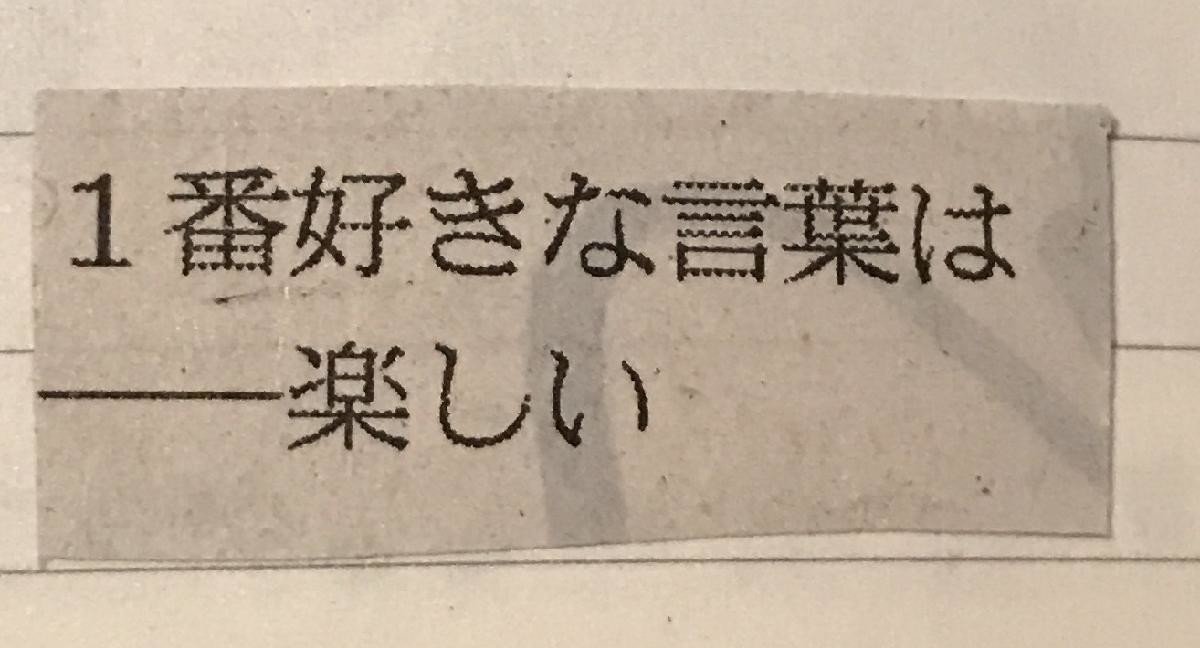 1番好きな言葉は
――楽しい